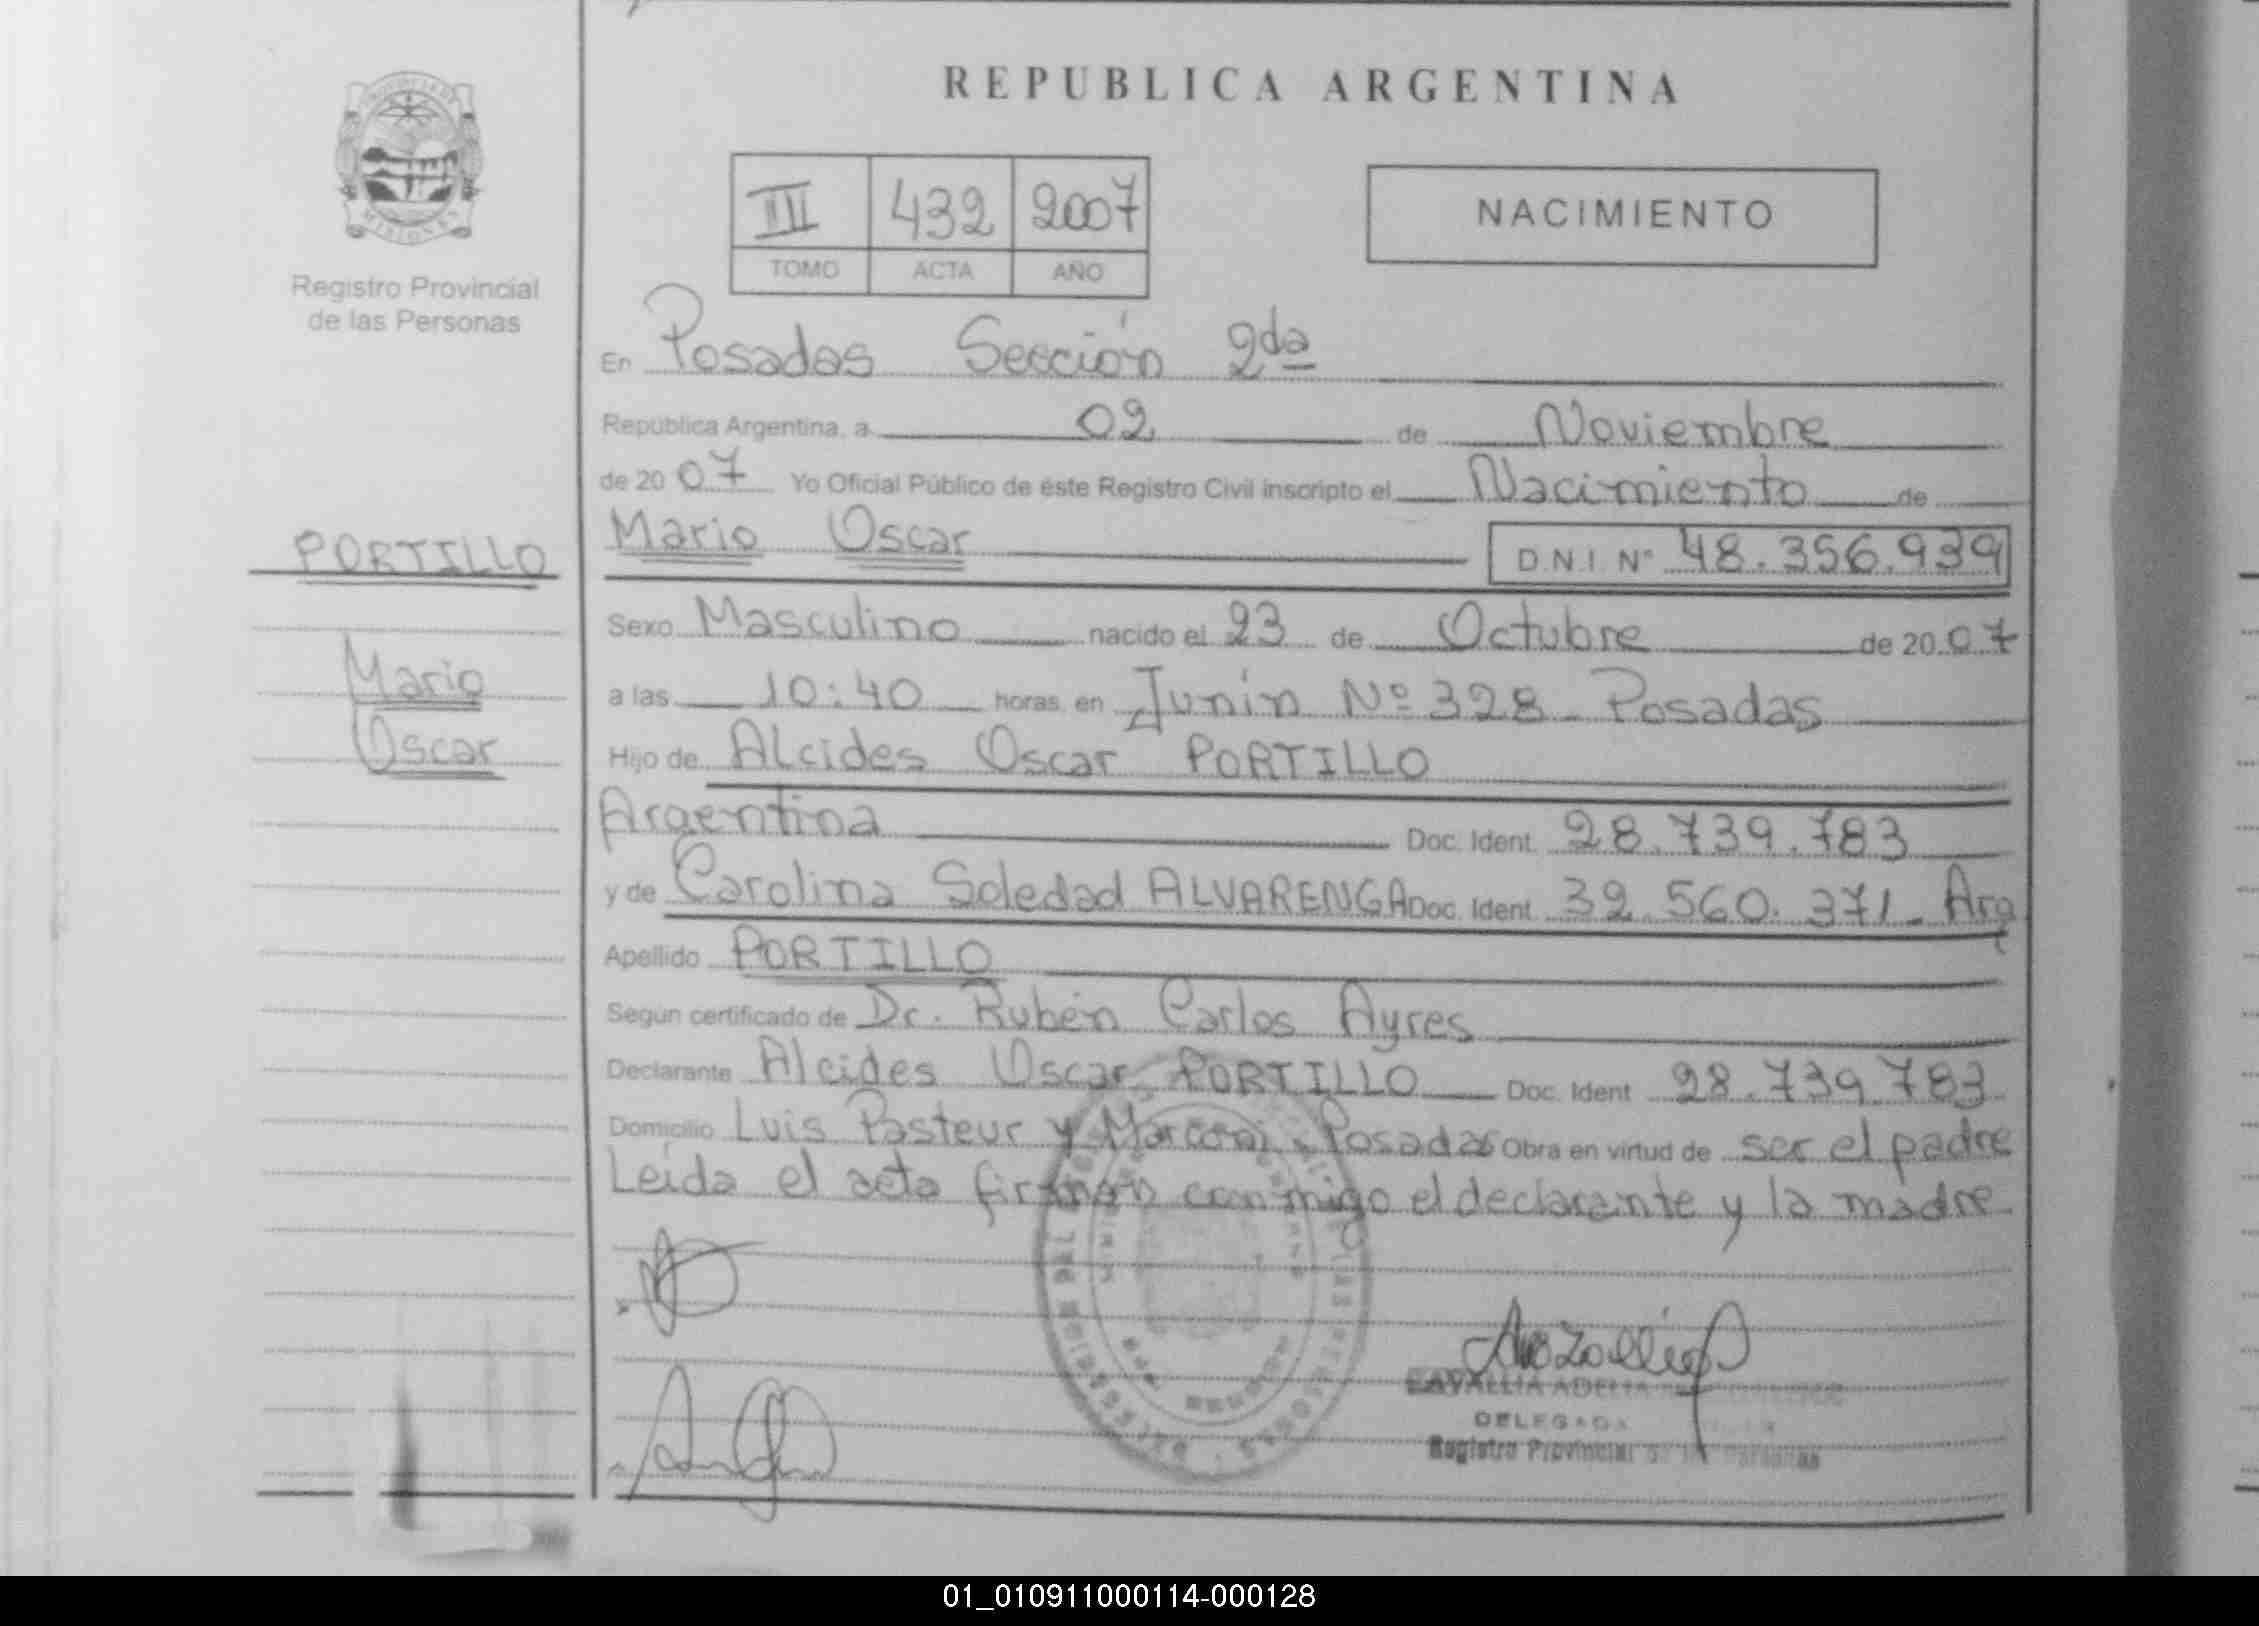 REPUBLICA ARGENTINA
PROVINCIA DE
MISIONES
Registro Provincial
de las Personas
III 432 2007
TOMO ACTA AÑO
NACIMIENTO
En Posadas Sección 2da
República Argentina, a 02 de Noviembre
de 2007 Yo Oficial Público de éste Registro Civil inscripto el Nacimiento de
PORTILLO
Mario Oscar D.N.I. Nº 48.356.939
Sexo Masculino nacido el 23 de Octubre de 2007
Mario
a las 10:40 horas, en Junín Nº 328 - Posadas
Oscar
Hijo de Alcides Oscar PORTILLO
Argentina Doc. Ident. 28.739.783
y de Carolina Soledad ALVARENGA Doc. Ident. 32.560.371 - Arg
Apellido PORTILLO
Según certificado de Dr. Rubén Carlos Ayres
Declarante Alcides Oscar PORTILLO Doc. Ident 28.739.783
Domicilio Luis Pasteur y Marconi - Posadas Obra en virtud de ser el padre
Leída el acta firman conmigo el declarante y la madre
DELEGADA
Registro Provincial de las Personas
01_010911000114-000128